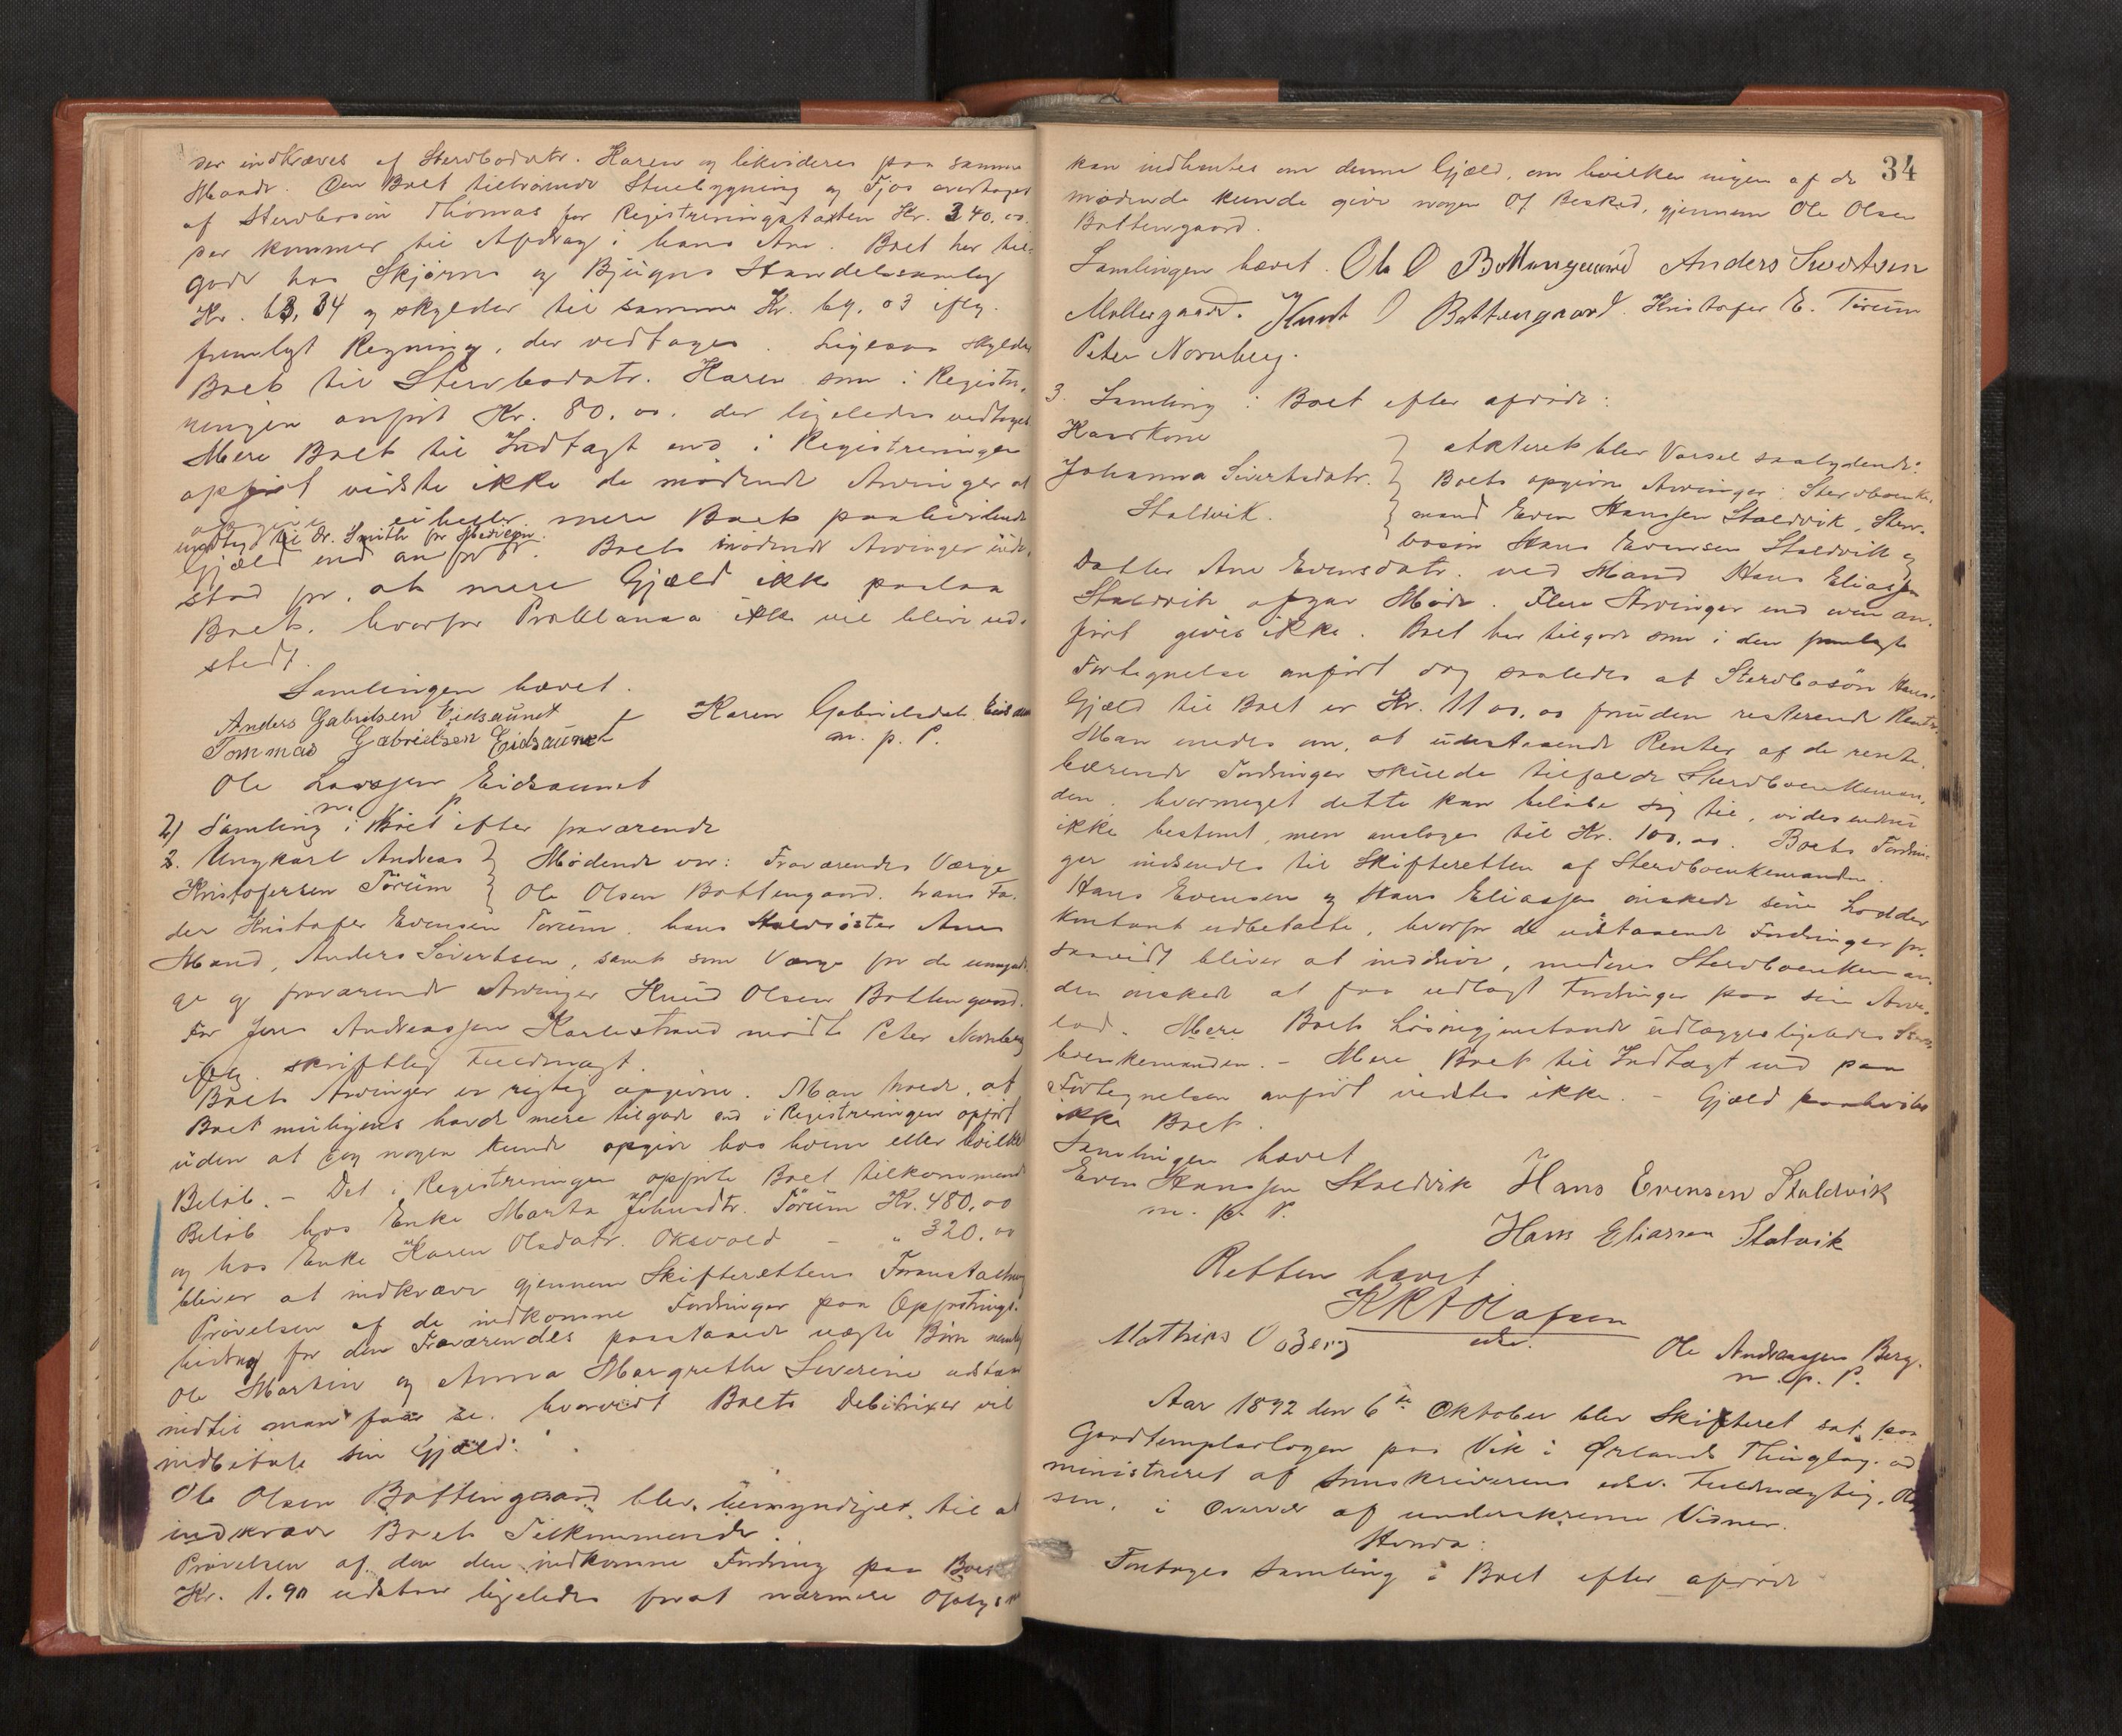 der indkræves af Stervbodatr. Karen og likvideres paa samme
Maade. Den Boet tilhørende Stuebygning og Fjøs overtages
af Stervbosøn Thomas for Registreringstaxten Kr. 340.00
der kommer til Afdrag i hans Arv. Boet har til-
gode hos Skjørns og Bjugns Handelssamlag
Kr. 63,34 og skylder til samme Kr. 69.03 iflg.
fremlagt Regning, der vedtages. Ligesaa skylder
Boet til Stervbodatr. Karen som i Registre-
ringen anført Kr. 80.00. der ligeledes vedtages
Mere Boet til Indtægt end i Registreringen
opført vidste ikke de mødende Arvinger at
opgive ei heller mere Boet paahvilende
undtagt til Dr. Smith for Medicin
Gjæld end anført. Boets mødende Arvinger inde-
stod for, at mere Gjæld ikke paalaa
Boet, hvorfor Proklama ikke vil blive ud-
stedt.
Samlingen hævet.
Anders Gabrielsen Eidsaunet Karen Gabrielsdatr. Eidsaun
Tommas Gabrielsen Eidsaunet m. p. P.
Ole Larssen Eidsaunet
m. p.
2) Samling i Boet efter fraværende
2. Ungkarl Andreas Mødende var: Fraværendes Værge
Kristofersen Tørum Ole Olsen Bottengaard. hans Fa-
der Kristofer Evensen Tørum. hans Halvsøster Anes
Mand, Anders Sivertsen, samt som Værge for de umyndi-
ge og fraværende Arvinger Knud Olsen Bottengaard.
For Jens Andreassen Karlestrand mødte Peter Nornberg
iflg. skriftlig Fuldmagt.
Boets Arvinger er rigtig opgivne. Man troede, at
Boet muligens havde mere tilgode end i Registreringen opført
uden at dog nogen kunde opgive hos hvem eller hvilket
Beløb. - Det i Registreringen opførte Boet tilkommende
Beløb hos Enke Marta Johnsdtr. Tørum Kr. 480.00
og hos Enke Karen Olsdatr. Oksvold - " 320.00
bliver at indkræve gjennem Skifterettens Foranstaltning
Prøvelsen af de indkomne Fordringer paa Opfostrings-
bidrag for den Fraværendes paastaaede uægte Børn nemlig
Ole Martin og Anna Margrethe Severine udstaar
indtil man faar se. hvorvidt Boets Debitrixer vil
indbetale sin Gjæld.
Ole Olsen Bottengaard blev bemyndiget til at
indkræve Boets Tilkommende.
Prøvelsen af den den indkomne Fordring paa Boet
Kr. 1.90 udstaar ligeledes forat nærmere Oplysn
34
kan indhentes om denne Gjæld, om hvilken ingen af de
mødende kunde give nogen Of Besked, gjennem Ole Olsen
Bottengaard.
Samlingen hævet. Ole O Bottengaard Anders Sivertsen
Møllergaard. Knut O Bottengaard. Kristofer E. Tørum
Peter Nornberg.
3. Samling i Boet efter afdøde:
Kaarkone
Johanna Sivertsdatr.
Staldvik.
Akteret blev Varsel saalydende:
Boets opgivne Arvinger: Sterboenke-
mand Even Hanssen Staldvik, Sterv-
bosøn Hans Evensen Staldvik og
Datter Ane Evensdatr. ved Mand Hans Eliassen
Staldvik afgav Møde. Flere Arvinger end oven an-
ført gives ikke. Boet har tilgode som i den fremlagte
Fortegnelse anført dog saaledes at Stervbosøn Hans
Gjæld til Boet er Kr. 1100.00 foruden resterende Renter.
Man enedes om, at udestaaende Renter af de rente-
bærende Fordringer skulde tilfalde Stervboenkeman-
den. hvormeget dette kan beløbe sig til, vides endnu
ikke bestemt, men ansloges til Kr. 100.00. Boets Fordrin-
ger indsendes til Skifteretten af Stervboenkemanden.
Hans Evensen og Hans Eliassen ønskede sine Lodder
kontant udbetalte, hvorfor de udstaaende Fordringer for-
saavidt bliver at inddrive, medens Stervboenkeman-
den ønskede at faa udlagt Fordringer paa sin Arve-
lod. Mere Boets Løsøregjenstande udlægges ligeledes Sterv-
boenkemanden. - Mere Boet til Indtægt end paa
Fortegnelsen anført vidstes ikke. - Gjæld paahviler
ikke Boet.
Samlingen hævet
Even Hanssen Staldvik Hans Evensen Staldvik
m. p. P.
Hans Eliassen Stalvik
Retten hævet
Olafsen
edsv.
Mathias O Berg
Ole Andreassen Berg.
m. p. P.
Aar 1892 den 6te Oktober blev Skifteret sat paa
Goodtemplarlogen paa Vik i Ørlands Thinglag. ad-
ministreret af Sorenskriverens edsv. Fuldmægtig, Olaf-
sen, i Overvær af underskrevne Vidner.
Hvorda:
Foretoges Samling i Boet efter afdøde